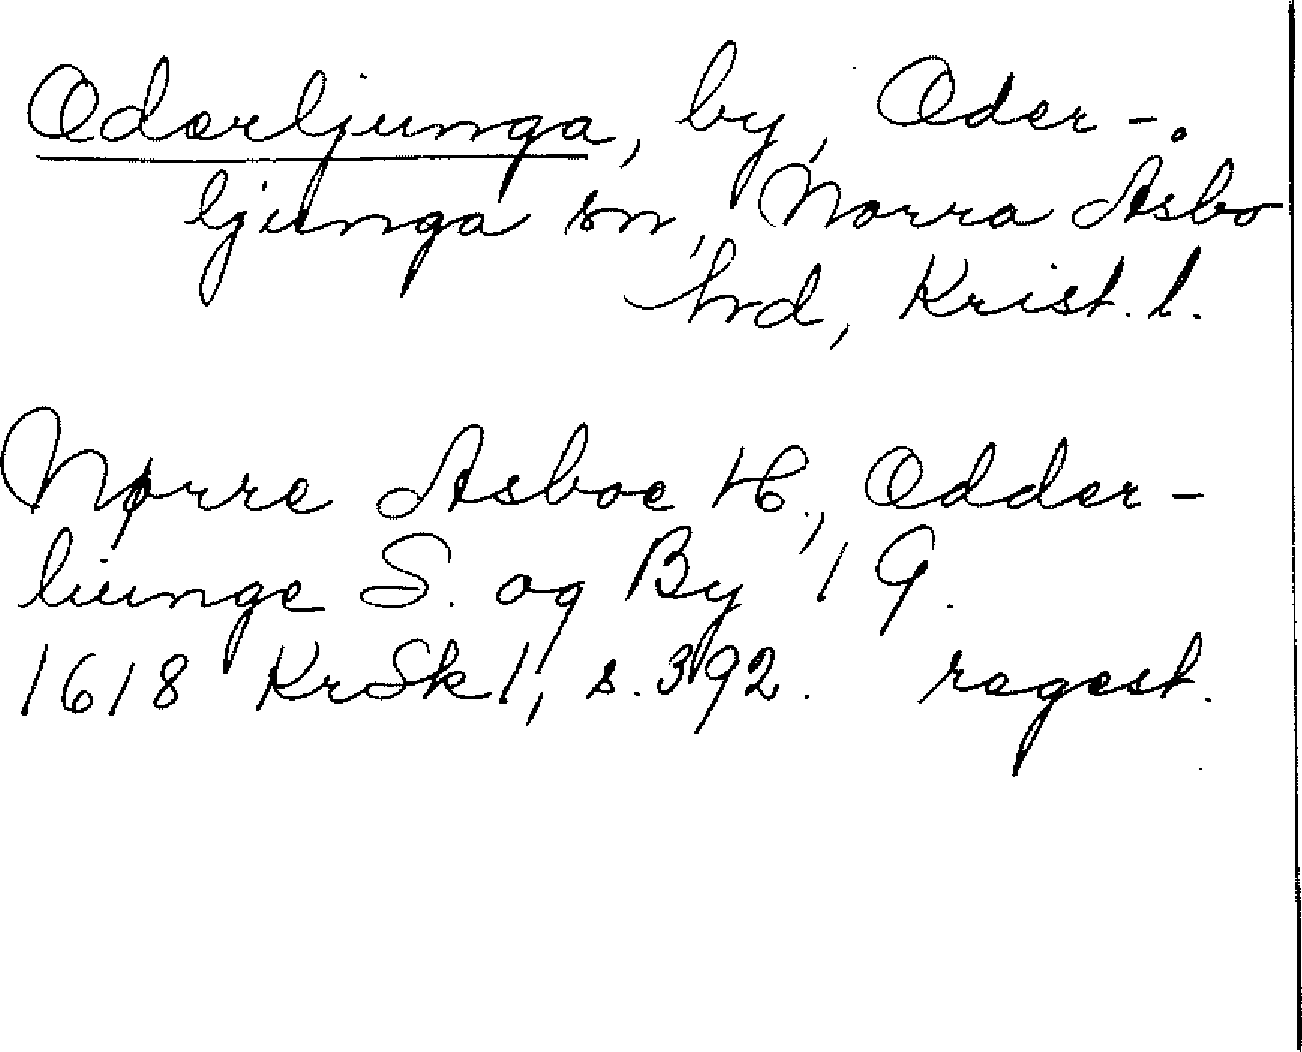 Oderljunga, by, Oder-
ljunga sn, Norra Åsbo
hrd, Krist. l.
Nørre Asboe H., Odder-
liunge S. og By 1 G.
1618 KrSk 1, s. 392. regest.